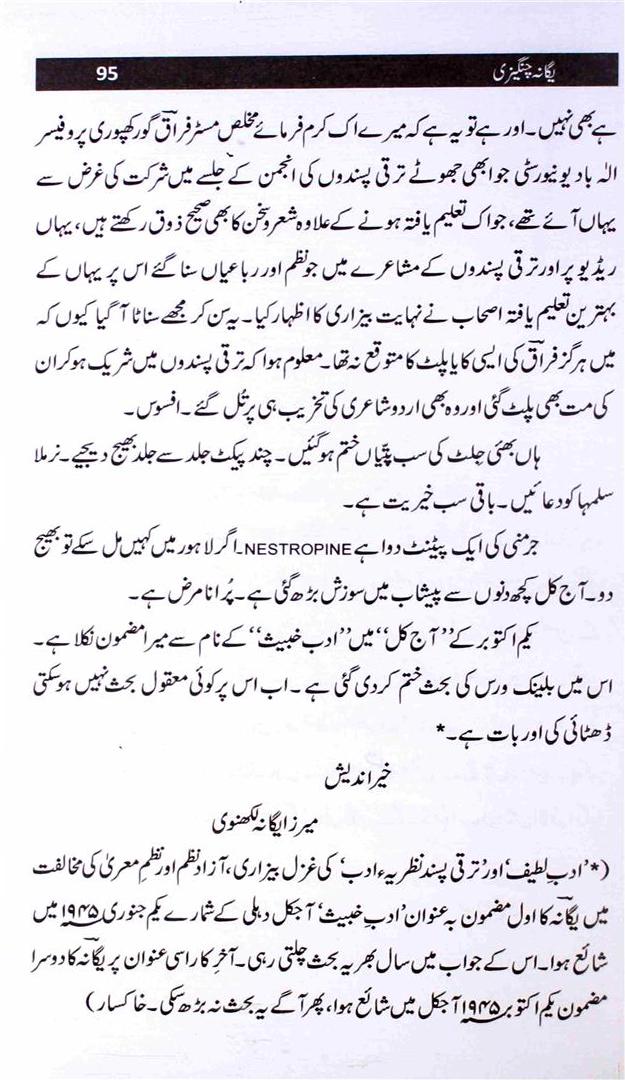 یگانہ چنگیزی 95
ہے بھی نہیں۔ اور ہے تو یہ ہے کہ میرے اک کرم فرمائے مخلص مسٹر فراقؔ گورکھپوری پروفیسر
الہٰ باد یونیورسٹی جو ابھی جھوٹے ترقی پسندوں کی انجمن کے جلسے میں شرکت کی غرض سے
یہاں آئے تھے، جو اک تعلیم یافتہ ہونے کے علاوہ شعر و سخن کا بھی صحیح ذوق رکھتے ہیں، یہاں
ریڈیو پر اور ترقی پسندوں کے مشاعرے میں جو نظم اور رباعیاں سنا گئے اس پر یہاں کے
بہترین تعلیم یافتہ اصحاب نے نہایت بیزاری کا اظہار کیا۔ یہ سن کر مجھے سناٹا آ گیا کیوں کہ
میں ہرگز فراقؔ کی ایسی کایا پلٹ کا متوقع نہ تھا۔ معلوم ہوا کہ ترقی پسندوں میں شریک ہو کر ان
کی مت بھی پلٹ گئی اور وہ بھی اردو شاعری کی تخریب ہی پر تُل گئے۔ افسوس۔
ہاں بھئی جِلٹ کی سب پتیاں ختم ہو گئیں۔ چند پیکٹ جلد سے جلد بھیج دیجیے۔ نرملا
سلمہا کو دعائیں۔ باقی سب خیریت ہے۔
جرمنی کی ایک پیٹنٹ دوا ہے NESTROPINE۔ اگر لاہور میں کہیں مل سکے تو بھیج
دو۔ آج کل کچھ دنوں سے پیشاب میں سوزش بڑھ گئی ہے۔ پُرانا مرض ہے۔
یکم اکتوبر کے ’’آج کل‘‘ میں ’’ادب خبیث‘‘ کے نام سے میرا مضمون نکلا ہے۔
اس میں بلینک ورس کی بحث ختم کر دی گئی ہے۔ اب اس پر کوئی معقول بحث نہیں ہو سکتی
ڈھٹائی کی اور بات ہے۔*
خیر اندیش
میرزا یگانہ لکھنوی
(*’ادبِ لطیف‘ اور ’ترقی پسند نظریہء ادب‘ کی غزل بیزاری، آزاد نظم اور نظمِ معریٰ کی مخالفت
میں یگانہؔ کا اول مضمون بہ عنوان ’ادبِ خبیث‘ آجکل دہلی کے شمارے یکم جنوری ۱۹۴۵ میں
شائع ہوا۔ اس کے جواب میں سال بھر یہ بحث چلتی رہی۔ آخرِ کار اسی عنوان پر یگانہؔ کا دوسرا
مضمون یکم اکتوبر ۱۹۴۵ آجکل میں شائع ہوا، پھر آگے یہ بحث نہ بڑھ سکی۔ خاکسار)